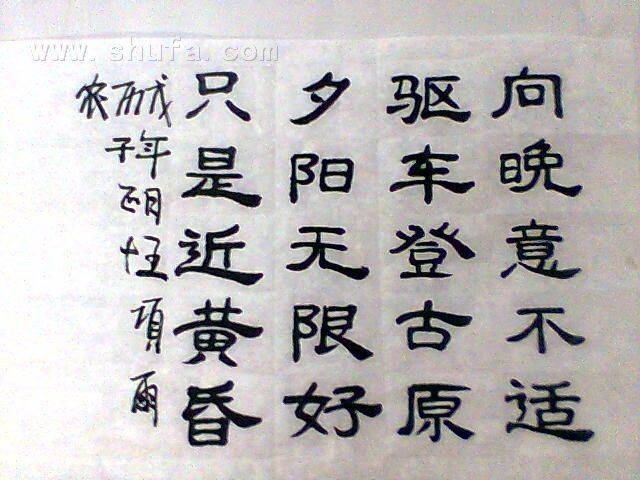 www.shufa.com
向晚意不适
驱车登古原
夕阳无限好
只是近黄昏
子年
項雨
农